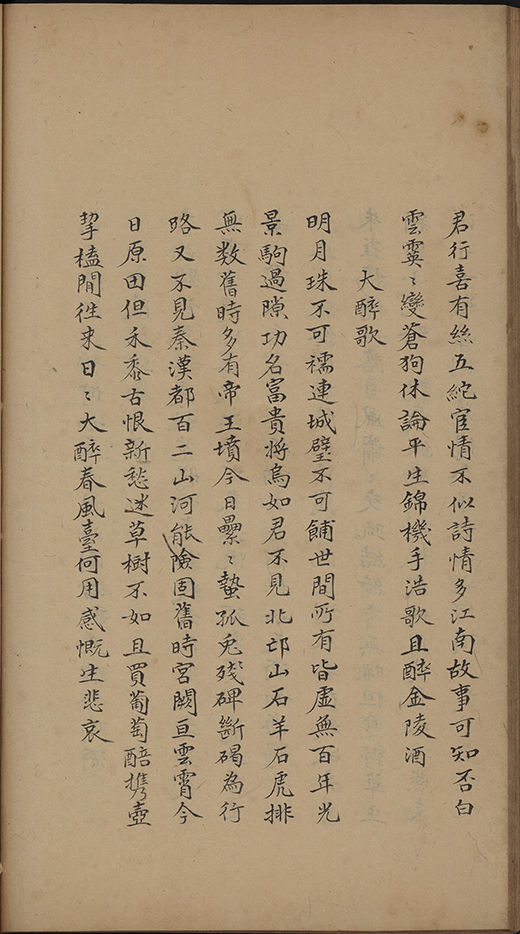 君行喜有絲五紽宦情不似詩情多江南故事可知否白
雲霙〻變蒼狗休論平生錦機手浩歌且醉金陵酒
大醉歌
明月珠不可襦連城璧不可餔世間所有皆虛無百年光
景駒過隙功名富貴將烏如君不見北邙山石羊石虎排
無数舊時多有帝王墳今日壘〻蟄孤兔殘碑斷碣為行
路又不見秦漢都百二山河能險固舊時宮闕亘雲霄今
日原田但禾黍古恨新愁迷草樹不如且買葡萄醅携壺
挈榼閒徃来日〻大醉春風臺何用感慨生悲哀